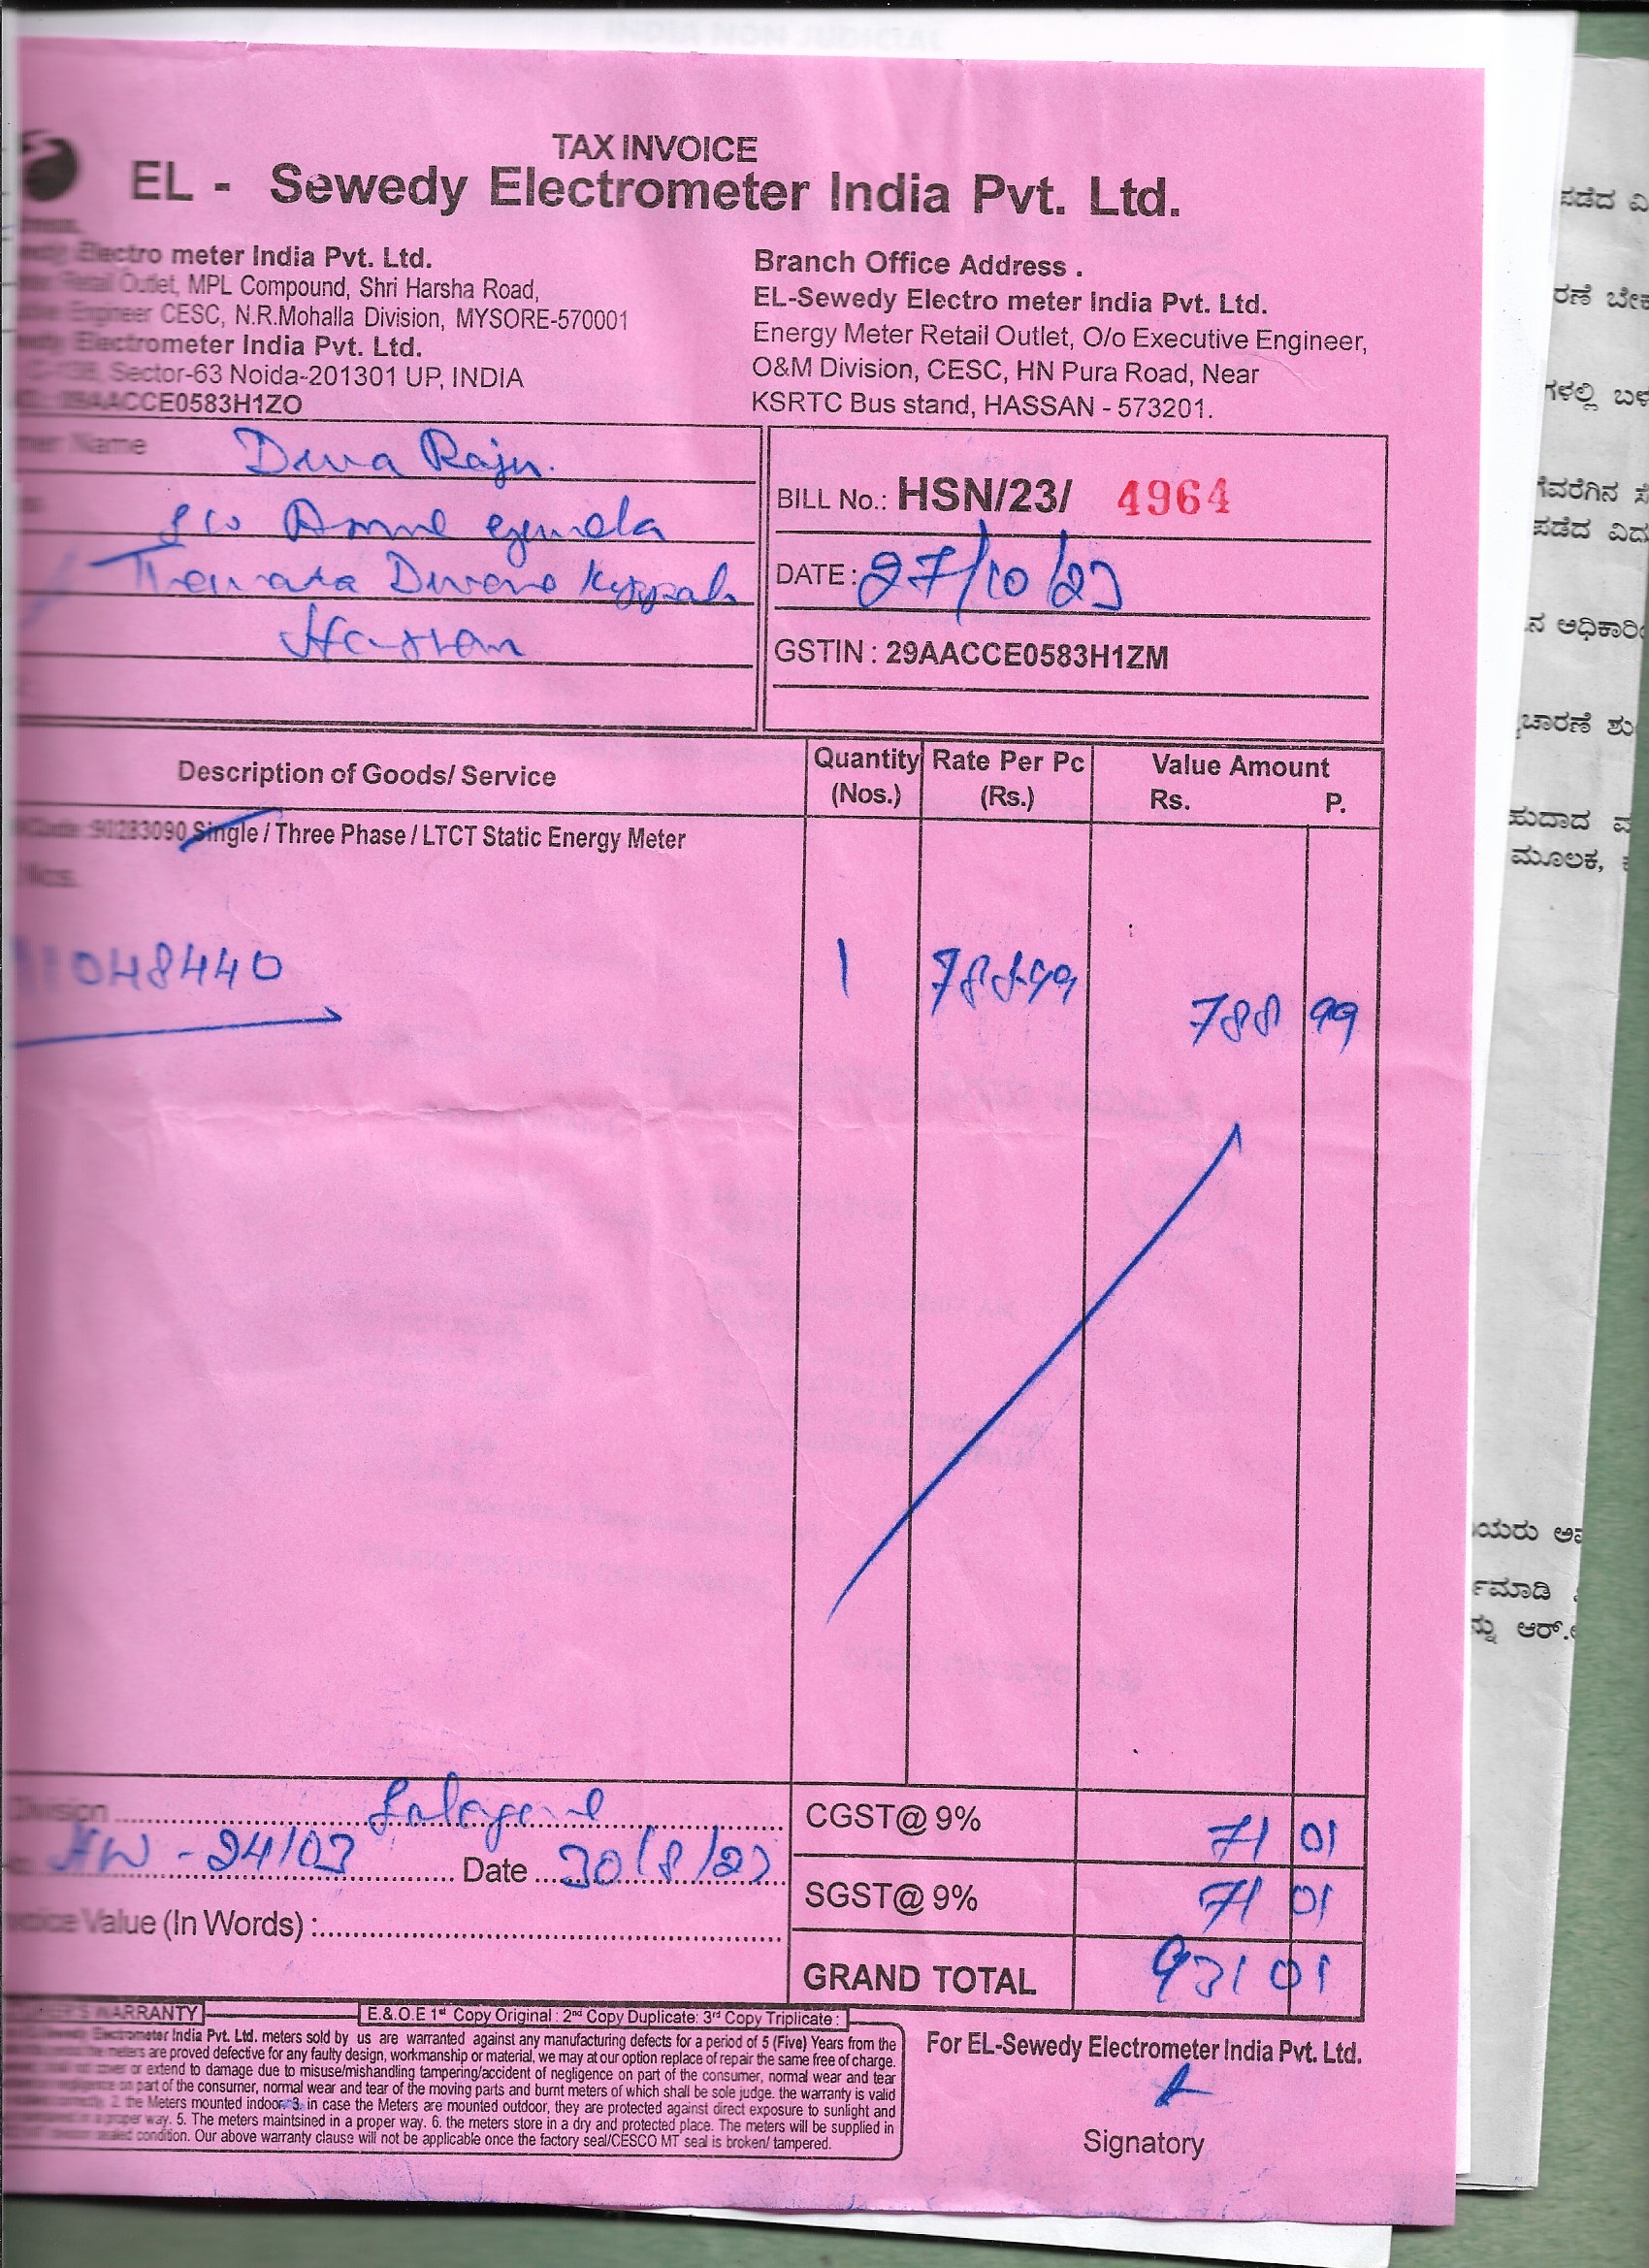 TAX INVOICE
EL - Sewedy Electrometer India Pvt. Ltd.
Electro meter India Pvt. Ltd.
Retail Outlet, MPL Compound, Shri Harsha Road,
Engineer CESC, N.R.Mohalla Division, MYSORE-570001
Electrometer India Pvt. Ltd.
Sector-63 Noida-201301 UP, INDIA
29AACCE0583H1ZO
Branch Office Address .
EL-Sewedy Electro meter India Pvt. Ltd.
Energy Meter Retail Outlet, O/o Executive Engineer,
O&M Division, CESC, HN Pura Road, Near
KSRTC Bus stand, HASSAN - 573201.
Name Deva Raju.
S/o
Hassan
BILL No.: HSN/23/ 4964
DATE : 27/10/23
GSTIN : 29AACCE0583H1ZM
Description of Goods/ Service
Quantity (Nos.)
Rate Per Pc (Rs.)
Value Amount
Rs. P.
90283090 Single / Three Phase / LTCT Static Energy Meter
Nos.
11048440 1 788-99 788 99
Division
HW - 24/03 Date 30/8/23
Value (In Words) :
CGST@ 9% 71 01
SGST@ 9% 71 01
GRAND TOTAL 931 01
WARRANTY
E.& O.E 1st Copy Original : 2nd Copy Duplicate: 3rd Copy Triplicate :
Electrometer India Pvt. Ltd. meters sold by us are warranted against any manufacturing defects for a period of 5 (Five) Years from the
the meters are proved defective for any faulty design, workmanship or material, we may at our option replace of repair the same free of charge.
not cover or extend to damage due to misuse/mishandling tampering/accident of negligence on part of the consumer, normal wear and tear
negligence on part of the consumer, normal wear and tear of the moving parts and burnt meters of which shall be sole judge. the warranty is valid
2. the Meters mounted indoor. 3. in case the Meters are mounted outdoor, they are protected against direct exposure to sunlight and
in a proper way. 5. The meters maintsined in a proper way. 6. the meters store in a dry and protected place. The meters will be supplied in
sealed condition. Our above warranty clause will not be applicable once the factory seal/CESCO MT seal is broken/ tampered.
For EL-Sewedy Electrometer India Pvt. Ltd.
Signatory
ಪಡೆದ
ಗಳಲ್ಲಿ
ಪಡೆದ
ಮೂಲಕ,